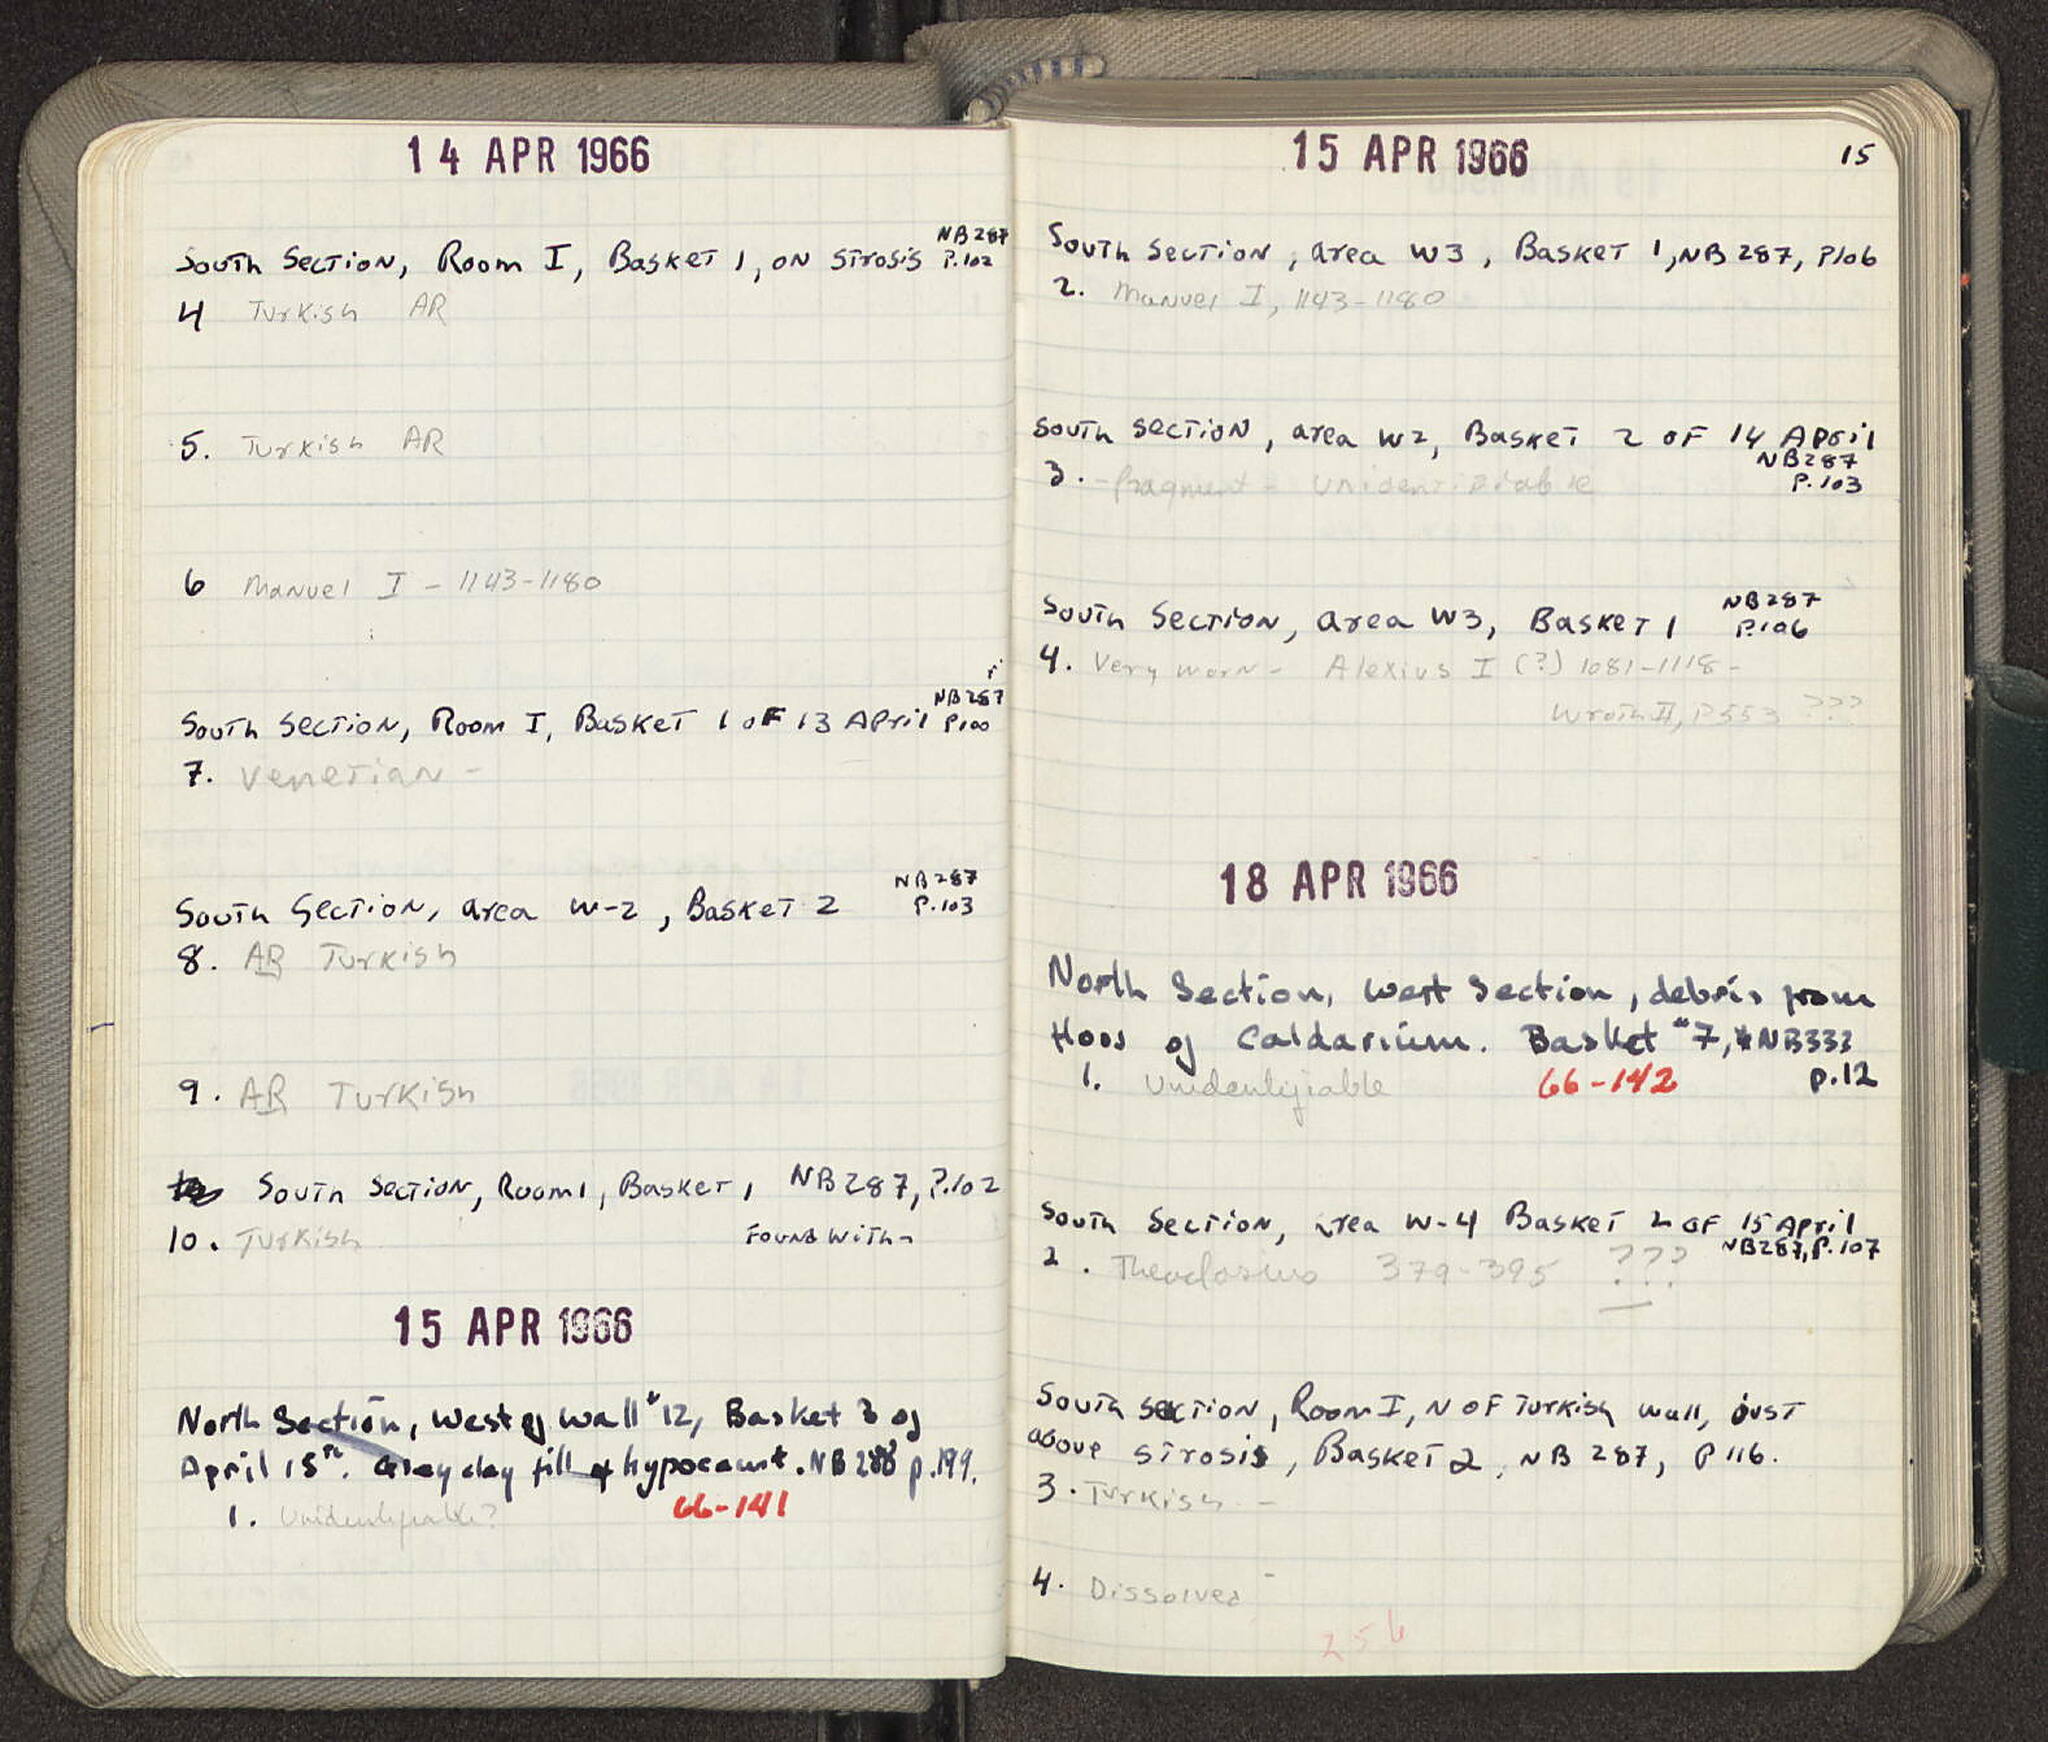 14 APR 1966
South Section, Room I, Basket 1, on strosis NB 287 P.102
4 Turkish AR
5. Turkish AR
6 Manuel I - 1143-1180
South Section, Room I, Basket 1 of 13 April NB 287 P100
7. Venetian -
South Section, area W-2, Basket 2 NB 287 P.103
8. AR Turkish
9. AR Turkish
South Section, Room 1, Basket 1 NB 287, P.102
10. Turkish Found with
15 APR 1966
North Section, West of Wall #12, Basket 3 of
April 15th. Grey clay fill of hypocaust. NB 288 p.199.
1. Unidentifiable? 66-141
15 APR 1966 15
South Section, area W3, Basket 1, NB 287, P106
2. Manuel I, 1143-1180
South Section, area W2, Basket 2 of 14 April
NB 287
3. -fragment- unidentifiable P.103
South Section, area W3, Basket 1 NB 287 P.106
4. Very worn - Alexius I (?) 1081-1118-
Wroth II, P553 ???
18 APR 1966
North Section, West Section, debris from
floor of Caldarium. Basket #7, NB333
1. Unidentifiable 66-142 p.12
South Section, area W-4 Basket 2 of 15 April
NB287, P.107
2. Theodosius 379-395 ???
South Section, Room I, N of Turkish wall, just
above strosis, Basket 2, NB 287, P 116.
3. Turkish -
4. Dissolved -
256